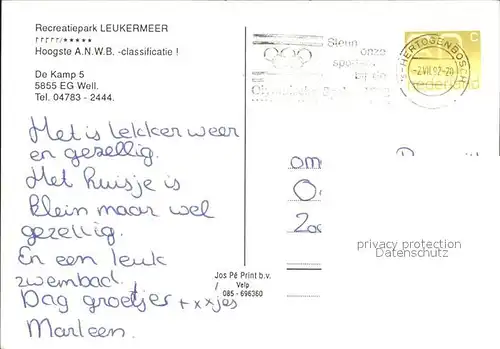 Recreatiepark LEUKERMEER
Hoogste A.N.W.B. -classificatie !
De Kamp 5
5855 EG Well.
Tel. 04783 - 2444.
Steun
onze
bij de
's-HERTOGENBOSCH
-2.VII.92-20
Nederland
C
Het is lekker weer
en gezellig.
Het huisje is
klein maar wel
gezellig.
En een leuk
zwembad!
Dag groetjes + x x jes
Marleen.
om
privacy protection
Datenschutz
Jos Pé Print b.v.
Velp
085 - 696360